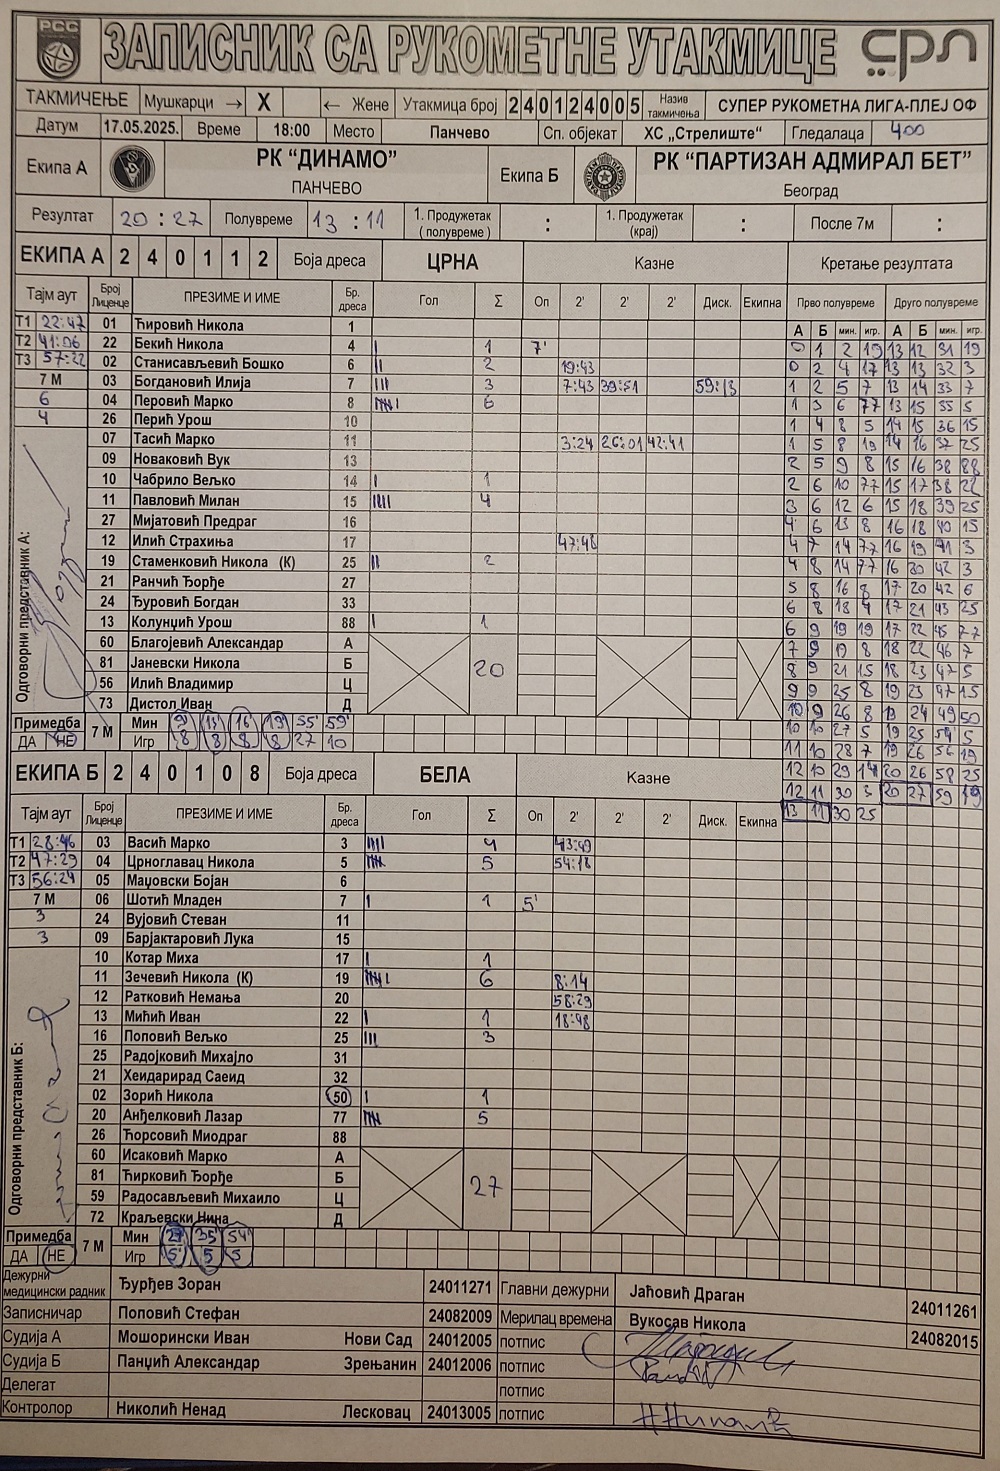 РСС ЗАПИСНИК СА РУКОМЕТНЕ УТАКМИЦЕ СРЛ
ТАКМИЧЕЊЕ Мушкарци → X ← Жене Утакмица број 240124005 Назив такмичења СУПЕР РУКОМЕТНА ЛИГА-ПЛЕЈ ОФ
Датум 17.05.2025. Време 18:00 Место Панчево Сп. објекат ХС „Стрелиште“ Гледалаца 400
Екипа А РК “ДИНАМО” ПАНЧЕВО Екипа Б РК “ПАРТИЗАН АДМИРАЛ БЕТ” Београд
Резултат 20 : 27 Полувреме 13 : 11 1. Продужетак ( полувреме ) : 1. Продужетак (крај) : После 7м :
ЕКИПА А 2 4 0 1 1 2 Боја дреса ЦРНА Казне Кретање резултата
Тајм аут Број Лиценце ПРЕЗИМЕ И ИМЕ Бр. дреса Гол Σ Оп 2' 2' 2' Диск. Екипна Прво полувреме Друго полувреме
А Б мин. игр. А Б мин. игр.
Т1 22:47 01 Ћировић Никола 1
Т2 41:06 22 Бекић Никола 4 I 1 7' 0 1 2 19 13 12 31 19
Т3 57:22 02 Станисављевић Бошко 6 II 2 19:43 0 2 4 17 13 13 32 3
7 М 03 Богдановић Илија 7 III 3 7:43 39:51 59:13 1 2 5 7 13 14 33 7
6 04 Перовић Марко 8 6 1 3 6 77 13 15 35 5
4 26 Перић Урош 10 1 4 8 5 14 15 36 15
07 Тасић Марко 11 3:24 26:01 42:41 1 5 8 19 14 16 37 25
09 Новаковић Вук 13 2 5 9 8 15 16 38 88
10 Чабрило Вељко 14 I 1 2 6 10 77 15 17 38 22
11 Павловић Милан 15 IIII 4 3 6 12 6 15 18 39 25
27 Мијатовић Предраг 16 4 6 13 8 16 18 40 15
12 Илић Страхиња 17 47:48 4 7 14 77 16 19 41 3
19 Стаменковић Никола (К) 25 II 2 4 8 14 77 16 20 42 3
21 Ранчић Ђорђе 27 5 8 16 8 17 20 42 6
24 Ђуровић Богдан 33 6 8 18 4 17 21 43 25
13 Колунџић Урош 88 I 1 6 9 19 19 17 22 45 77
60 Благојевић Александар А 7 9 19 8 18 22 46 7
81 Јаневски Никола Б 20 8 9 21 15 18 23 47 5
56 Илић Владимир Ц 9 9 25 8 19 23 47 15
73 Дистол Иван Д 10 9 26 8 19 24 49 50
Одговорни представник А:
Примедба 7 М Мин 9' 13' 16' 19' 55' 59' 10 10 27 5 19 25 54 5
ДА НЕ Игр 8 8 8 8 27 10 11 10 28 7 19 26 56 19
ЕКИПА Б 2 4 0 1 0 8 Боја дреса БЕЛА Казне 12 10 29 14 20 26 58 25
12 11 30 3 20 27 59 19
Тајм аут Број Лиценце ПРЕЗИМЕ И ИМЕ Бр. дреса Гол Σ Оп 2' 2' 2' Диск. Екипна 13 11 30 25
Т1 28:46 03 Васић Марко 3 IIII 4 43:49
Т2 47:29 04 Црноглавац Никола 5 5 54:18
Т3 56:24 05 Маџовски Бојан 6
7 М 06 Шотић Младен 7 I 1 5'
3 24 Вујовић Стеван 11
3 09 Барјактаровић Лука 15
10 Котар Миха 17 I 1
11 Зечевић Никола (К) 19 6 8:14
12 Ратковић Немања 20 58:29
13 Мићић Иван 22 I 1 18:48
16 Поповић Вељко 25 III 3
25 Радојковић Михајло 31
21 Хеидарирад Саеид 32
02 Зорић Никола 50 I 1
20 Анђелковић Лазар 77 5
26 Ћорсовић Миодраг 88
60 Исаковић Марко А
81 Ћирковић Ђорђе Б 27
59 Радосављевић Михаило Ц
72 Краљевски Нина Д
Одговорни представник Б:
Примедба 7 М Мин 27' 35' 54'
ДА НЕ Игр 5 5 5
Дежурни медицински радник Ђурђев Зоран 24011271 Главни дежурни Јаћовић Драган 24011261
Записничар Поповић Стефан 24082009 Мерилац времена Вукосав Никола 24082015
Судија А Мошорински Иван Нови Сад 24012005 потпис
Судија Б Панџић Александар Зрењанин 24012006 потпис
Делегат потпис
Контролор Николић Ненад Лесковац 24013005 потпис